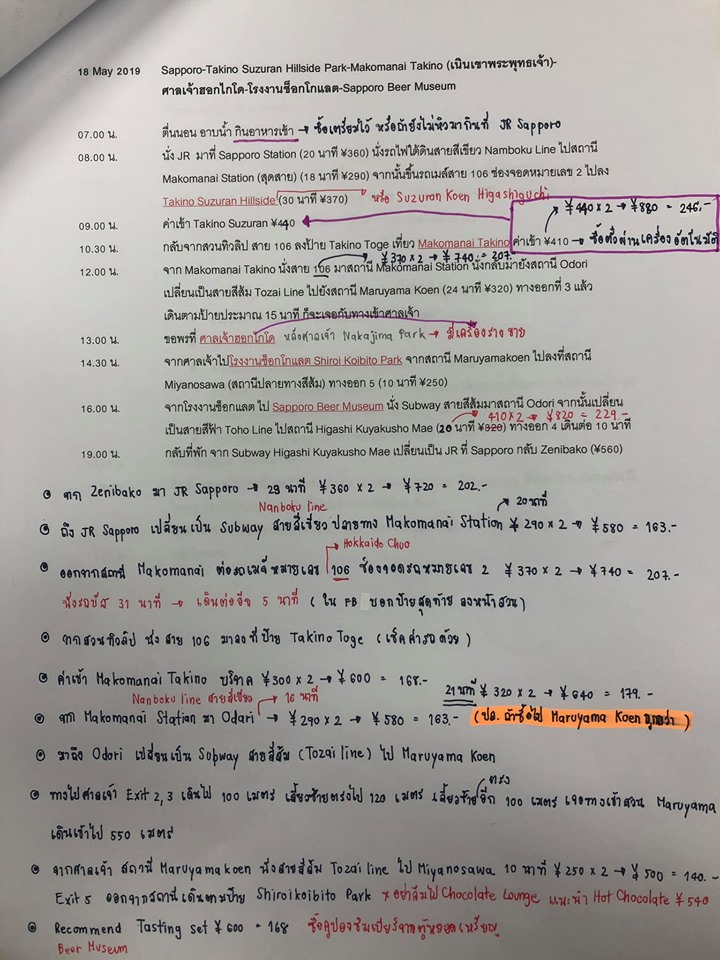 18 May 2019 Sapporo-Takino Suzuran Hillside Park-Makomanai Takino (เนินเขาพระพุทธเจ้า)-
ศาลเจ้าฮอกไกโด-โรงงานช็อกโกแลต-Sapporo Beer Museum
07.00 น. ตื่นนอน อาบน้ำ กินอาหารเช้า → ซื้อเตรียมไว้ หรือถ้ายังไม่หิวมากินที่ JR Sapporo
08.00 น. นั่ง JR มาที่ Sapporo Station (20 นาที ¥360) นั่งรถไฟใต้ดินสายสีเขียว Namboku Line ไปสถานี
Makomanai Station (สุดสาย) (18 นาที ¥290) จากนั้นขึ้นรถเมล์สาย 106 ช่องจอดหมายเลข 2 ไปลง
Takino Suzuran Hillside (30 นาที ¥370) → หรือ Suzuran Koen Higashiguchi
¥440 x 2 → ¥880 = 246.-
09.00 น. ค่าเข้า Takino Suzuran ¥440
10.30 น. กลับจากสวนทิวลิป สาย 106 ลงป้าย Takino Toge เที่ยว Makomanai Takino ค่าเข้า ¥410 → ซื้อตั๋วผ่านเครื่องอัตโนมัติ
¥370 x 2 → ¥740 = 207.-
12.00 น. จาก Makomanai Takino นั่งสาย 106 มาสถานี Makomanai Station นั่งกลับมายังสถานี Odori
เปลี่ยนเป็นสายสีส้ม Tozai Line ไปยังสถานี Maruyama Koen (24 นาที ¥320) ทางออกที่ 3 แล้ว
เดินตามป้ายประมาณ 15 นาที ก็จะเจอกับทางเข้าศาลเจ้า
13.00 น. ขอพรที่ ศาลเจ้าฮอกไกโด หลังศาลเจ้า Nakajima Park → มีเครื่องราง ขาย
14.30 น. จากศาลเจ้าไปโรงงานช็อกโกแลต Shiroi Koibito Park จากสถานี Maruyamakoen ไปลงที่สถานี
Miyanosawa (สถานีปลายทางสีส้ม) ทางออก 5 (10 นาที ¥250)
16.00 น. จากโรงงานช็อกแลต ไป Sapporo Beer Museum นั่ง Subway สายสีส้มมาสถานี Odori จากนั้นเปลี่ยน
410 x 2 → ¥820 = 229.-
เป็นสายสีฟ้า Toho Line ไปสถานี Higashi Kuyakusho Mae (20 นาที ¥320) ทางออก 4 เดินต่อ 10 นาที
19.00 น. กลับที่พัก จาก Subway Higashi Kuyakusho Mae เปลี่ยนเป็น JR ที่ Sapporo กลับ Zenibako (¥560)
จาก Zenibako มา JR Sapporo → 29 นาที ¥360 x 2 → ¥720 = 202.-
Nanboku line
→ 20 นาที
ถึง JR Sapporo เปลี่ยนเป็น Subway สายสีเขียว ปลายทาง Makomanai Station ¥290 x 2 → ¥580 = 163.-
→ Hokkaido Chuo
ออกจากสถานี Makomanai ต่อรถเมล์หมายเลข 106 ช่องจอดรถหมายเลข 2 ¥370 x 2 → ¥740 = 207.-
นั่งรถบัส 31 นาที → เดินต่ออีก 5 นาที (ใน FB บอกป้ายสุดท้าย ลงหน้าสวน)
จากสวนทิวลิป นั่ง สาย 106 มาลงที่ป้าย Takino Toge (เช็คค่ารถด้วย)
ค่าเข้า Makomanai Takino บริจาค ¥300 x 2 → ¥600 = 168.-
21 นาที ¥320 x 2 → ¥640 = 179.-
Nanboku line สายสีเขียว → 16 นาที
จาก Makomanai Station มา Odari → ¥290 x 2 → ¥580 = 163.- (ปล. ถ้าซื้อไป Maruyama Koen ถูกกว่า)
มาถึง Odori เปลี่ยนเป็น Subway สายสีส้ม (Tozai line) ไป Maruyama Koen
ตรง
ทางไปศาลเจ้า Exit 2, 3 เดินไป 100 เมตร เลี้ยวซ้ายตรงไป 120 เมตร เลี้ยวซ้ายอีก 100 เมตร เจอทางเข้าสวน Maruyama
เดินเข้าไป 550 เมตร
จากศาลเจ้า สถานี Maruyamakoen นั่งสายสีส้ม Tozai line ไป Miyanosawa 10 นาที ¥250 x 2 → ¥500 = 140.-
Exit 5 ออกจากสถานีเดินตามป้าย Shiroikoibito Park * อย่าลืมไป Chocolate Lounge แนะนำ Hot Chocolate ¥540
Recommend Tasting set ¥600 = 168 ซื้อคูปองชิมเบียร์จากตู้หยอดเหรียญ
Beer Museum